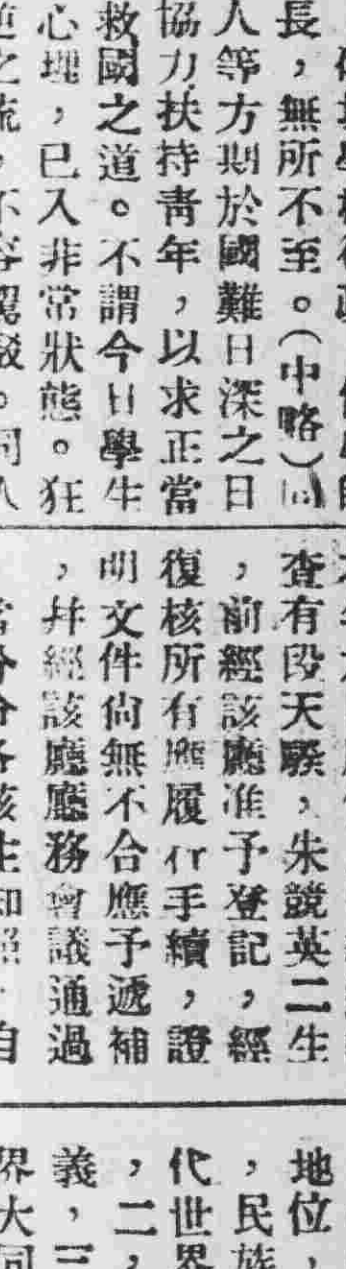 長，無所不至。（中略）同
人等方期於國難日深之日
協力扶持靑年，以求正當
救國之道。不謂今日學生
心理，已入非常狀態。狂
查有段天騤，朱競英二生
，前經該廳准予登記，經
復核所有應履行手續，證
明文件尙無不合應予遞補
，幷經該廳廳務會議通過
地位，
，民族
代世界
，二，
義，三
界大同